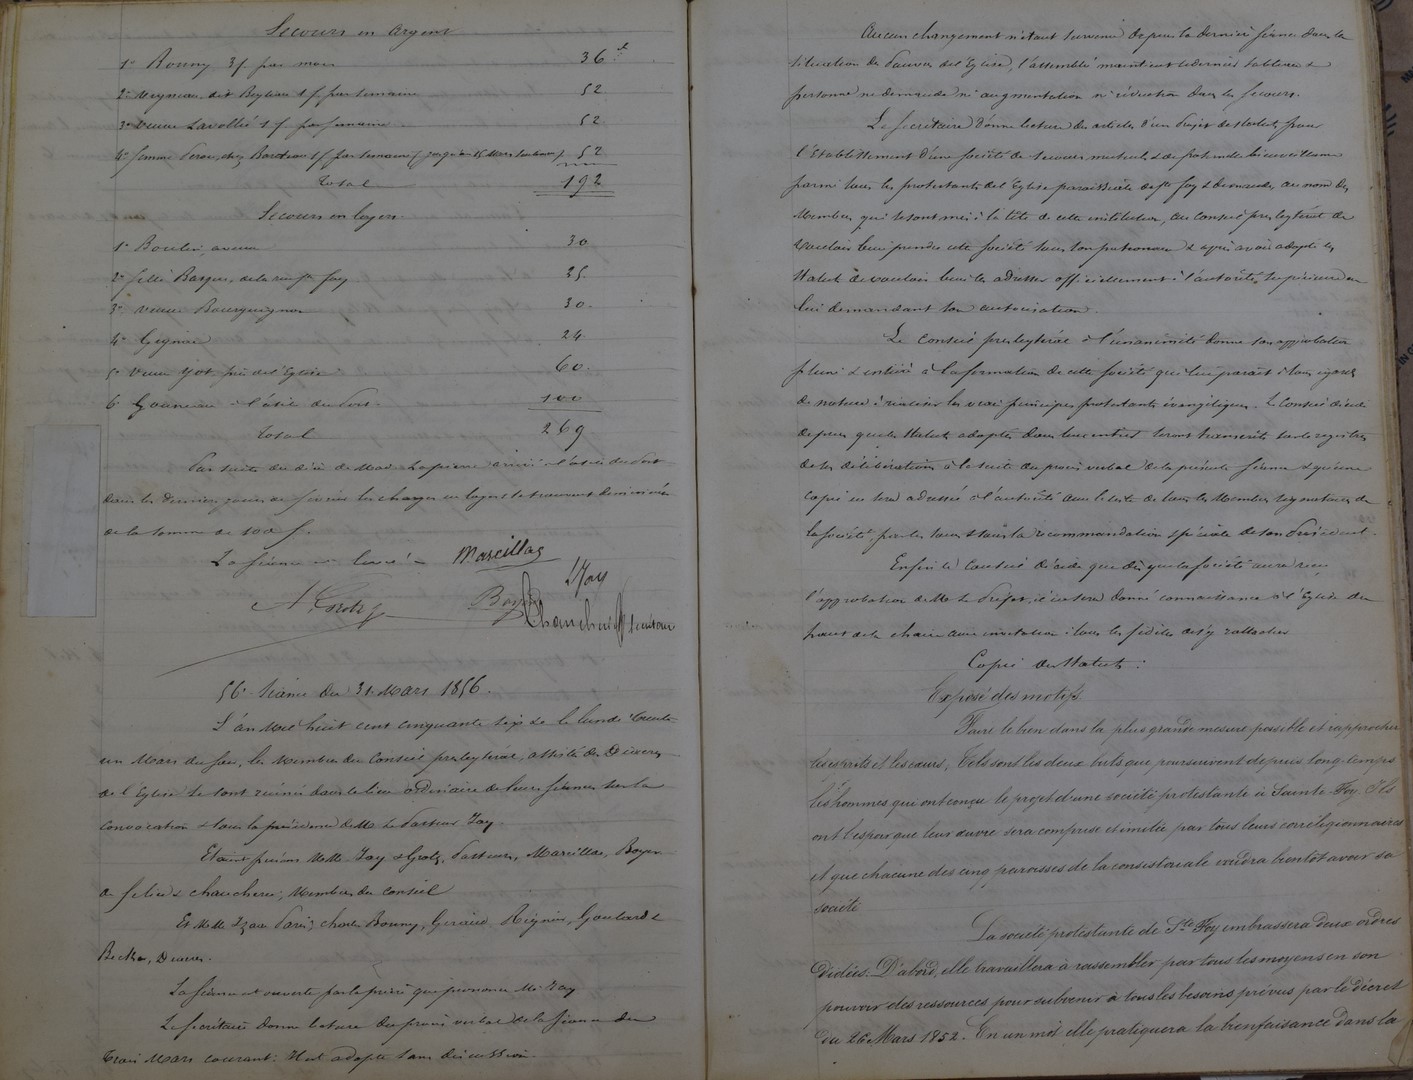 Secours en argent
1º Bonny 3 f par mois 36 f
2º Meyneau dit Boyleau 1 f par semaine 52
3º veuve Lavollié 1 f par semaine 52
4º femme Perou, chez Bordeau 1 f par semaine (jusqu'au 15 Mars seulement) 52
Total 192
Secours en loyers
1º Boulin, aveugle 30
2º fille Barque, de la rue Ste foy 35
3º veuve Bourguignon 30
4º Gignac 24
5º veuve Yot, près de l'Eglise 60
6º Gouneau à l'asile du Port 100
Total 269
Par suite du décès de Mad. Lapierre arrivé à l'asile du Port
dans les derniers jours de février les charges en loyers se trouvent diminuées
de la somme de 100 f.
La séance est levée. Marcillas
A. Grotz Boyer Jay
Chaucherie secrétaire
56e Séance du 31 Mars 1856.
L'an Mil huit cent cinquante six & le lundi trente
un Mars au soir, les Membres du Conseil presbytéral, assistés des Diacres
de l'Eglise se sont réunis dans le lieu ordinaire de leurs séances sur la
convocation & sous la présidence de M. le Pasteur Jay.
Etaient présens MM. Jay & Grotz, Pasteurs, Marcillas, Boyer
& Chaucherie, Membres du Conseil
Et MM. Paris, Charles Bonny, Geraud, Reignier, Goulard &
Becker, Diacres.
La séance est ouverte par la prière que prononce M. Jay
Le Secrétaire donne lecture du procès verbal de la séance du
trois Mars courant: Il est adopté sans discussion.
Aucun changement n'étant survenu depuis la dernière séance dans la
situation des Pauvres de l'Eglise, l'assemblée maintient le dernier tableau &
personne ne demande ni augmentation ni réduction dans les secours.
Le Secrétaire donne lecture des articles d'un Projet de Statuts pour
l'Etablissement d'une Société de secours mutuels & de fraternelle bienveillance
parmi tous les protestants de l'Eglise paroissiale de Ste foy & demande, au nom des
Membres qui se sont mis à la tête de cette institution, au Conseil presbytéral de
vouloir bien prendre cette Société sous son patronage & après avoir adopté les
Statuts de vouloir bien les adresser officiellement à l'autorité supérieure en
lui demandant son autorisation.
Le Conseil presbytéral à l'unanimité donne son approbation
pleine & entière à la formation de cette Société qui lui paraît à tous égards
de nature à réaliser les vrais principes protestants évangéliques. Le Conseil décide
de plus que les Statuts adoptés dans leur entier seront transcrits sur le registre
de ses délibérations à la suite du procès verbal de la présente séance & qu'une
copie en sera adressée à l'autorité avec la liste de tous les Membres signataires de
la Société, sous la recommandation spéciale de son Président.
Enfin le Conseil décide que dès que la Société aura reçu
l'approbation de M. le Préfet, il en sera donné connaissance à l'Eglise du
haut de la chaire avec invitation à tous les fidèles de s'y rattacher
Copie des Statuts:
Exposé des motifs
Faire le bien dans la plus grande mesure possible et rapprocher
les esprits et les coeurs, Tels sont les deux buts que poursuivent depuis long-temps
les hommes qui ont conçu le projet d'une société protestante à Sainte Foy. Ils
ont l'espoir que leur oeuvre sera comprise et imitée par tous leurs corréligionnaires
et que chacune des cinq paroisses de la consistoriale voudra bientôt avoir sa
société
La société protestante de Ste Foy embrassera deux ordres
d'idées. D'abord, elle travaillera à rassembler par tous les moyens en son
pouvoir des ressources pour subvenir à tous les besoins prévus par le décret
du 26 Mars 1852. En un mot elle pratiquera la bienfaisance dans la